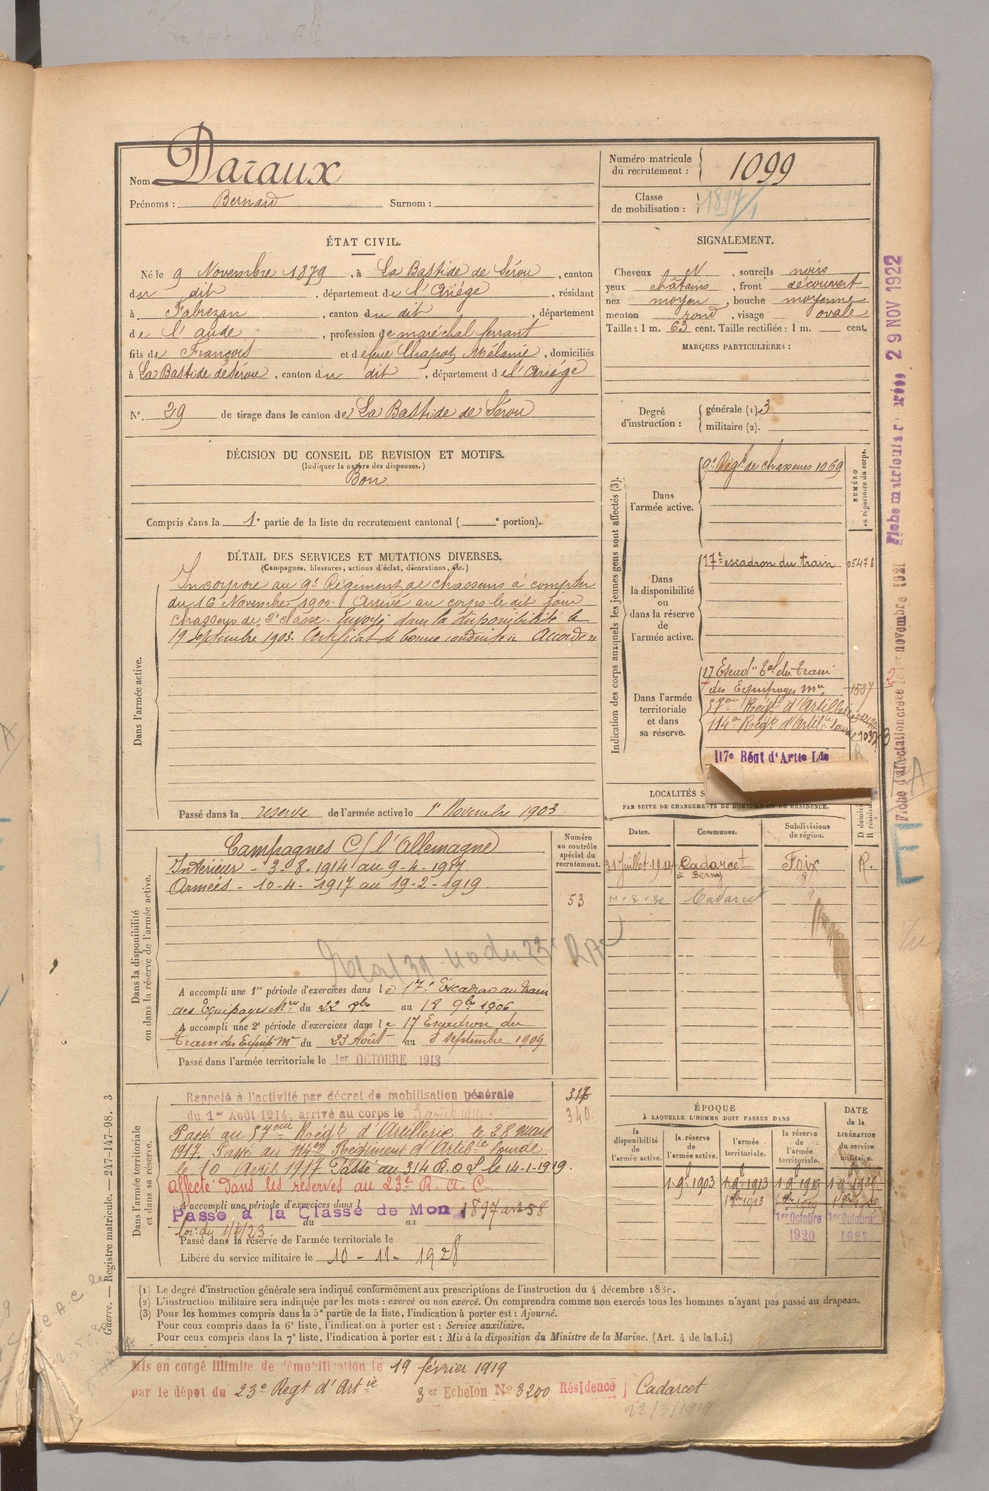 Nom Daraux
Prénoms : Bernard Surnom :
Numéro matricule du recrutement : 1099
Classe de mobilisation : 1897
ÉTAT CIVIL.
Né le 9 Novembre 1879, à La Bastide de Sérou, canton
du dit, département de l'Ariège, résidant
à Fabrezan, canton du dit, département
de l'aude, profession de maréchal ferrant
fils de François et de feue Chapot Mélanie, domiciliés
à La Bastide de Sérou, canton du dit, département de l'Ariège
N°. 29 de tirage dans le canton de La Bastide de Sérou
SIGNALEMENT.
Cheveux N, sourcils noirs
yeux châtains, front découvert
nez moyen, bouche moyenne
menton rond, visage ovale
Taille : 1 m. 63 cent. Taille rectifiée : 1 m. cent.
MARQUES PARTICULIÈRES :
Degré d'instruction : générale (1) 3
militaire (2).
DÉCISION DU CONSEIL DE REVISION ET MOTIFS.
(Indiquer la nature des dispenses.)
Bon
Compris dans la 1e partie de la liste du recrutement cantonal ( e portion).
DÉTAIL DES SERVICES ET MUTATIONS DIVERSES.
(Campagnes, blessures, actions d'éclat, décorations, etc.)
Dans l'armée active.
Incorporé au 9e Régiment de chasseurs à compter
du 16 Novembre 1900. Arrivé au corps le dit jour
chasseur de 2e classe. Envoyé dans la disponibilité le
19 septembre 1903. Certificat de bonne conduite Accordé
Passé dans la réserve de l'armée active le 1er Novembre 1903
Indication des corps auxquels les jeunes gens sont affectés (3).
NUMÉRO au répertoire du corps.
Dans l'armée active.
9e Régt de chasseurs 1069
Dans la disponibilité ou dans la réserve de l'armée active.
17e escadron du train 05478
Dans l'armée territoriale et dans sa réserve.
17 Escadn Tal du Train
des Equipages Mre 1587
57eme Régt d'Artillerie
114e Régt d'Artie Lourde
117e Régt d'Artie Lde
LOCALITÉS S
PAR SUITE DE CHANGEMENTS DE DOMICILE OU DE RÉSIDENCE.
Dates. Communes. Subdivisions de région.
31 Juillet 1914 Cadarcet Foix R.
Cadarcet
Dans la disponibilité ou dans la réserve de l'armée active.
Numéro au contrôle spécial du recrutement.
53
Campagnes C/ l'Allemagne
Intérieur - 3-8-1914 au 9-4-1917
Armées - 10-4-1917 au 19-2-1919.
A accompli une 1re période d'exercices dans le 17e Escadron du train
des Equipages Mre du 22 8bre au 18 9bre 1906
A accompli une 2e période d'exercices dans le 17 Escadron du
train des Equip. Mre du 23 Août au 8 septembre 1909
Passé dans l'armée territoriale le 1er OCTOBRE 1913
Dans l'armée territoriale et dans sa réserve.
317
340
Rappelé à l'activité par décret de mobilisation générale
du 1er Août 1914, arrivé au corps le 3 août 1914
Passé au 57eme Régt d'Artillerie le 28 mars
1917. Passé au 114e Régiment d'Artillerie lourde
le 10 Avril 1917 Passé au 314 R.A.L le 14-1-1919.
affecté dans les réserves au 23e R. A. C.
A accompli une période d'exercices dans l
Passé à la Classe de Mon 1897 art 58
loi du 1/4/23 du au
Passé dans la réserve de l'armée territoriale le
Libéré du service militaire le 10 - 11 - 1928
ÉPOQUE
À LAQUELLE L'HOMME DOIT PASSER DANS
la disponibilité de l'armée active. la réserve de l'armée active. l'armée territoriale. la réserve de l'armée territoriale.
DATE de la LIBÉRATION du service militaire.
1 9e 1903 1 9 1913 1 9 1919
1er Octobre 1920
1er Octobre
(1) Le degré d'instruction générale sera indiqué conformément aux prescriptions de l'instruction du 4 décembre 1889.
(2) L'instruction militaire sera indiquée par les mots : exercé ou non exercé. On comprendra comme non exercés tous les hommes n'ayant pas passé au drapeau.
(3) Pour les hommes compris dans la 5e partie de la liste, l'indication à porter est : Ajourné.
Pour ceux compris dans la 6e liste, l'indication à porter est : Service auxiliaire.
Pour ceux compris dans la 7e liste, l'indication à porter est : Mis à la disposition du Ministre de la Marine. (Art. 4 de la Loi.)
Mis en congé illimité de démobilisation le 19 février 1919
par le dépôt du 23e Regt d'Artie 3er Echelon N° 3200 Résidence Cadarcet
22/3/1919
Guerre. — Registre matricule. — 247-147-98. 3
Fiche matricule 29 NOV 1922
Fiche d'affectation créée novembre 1921